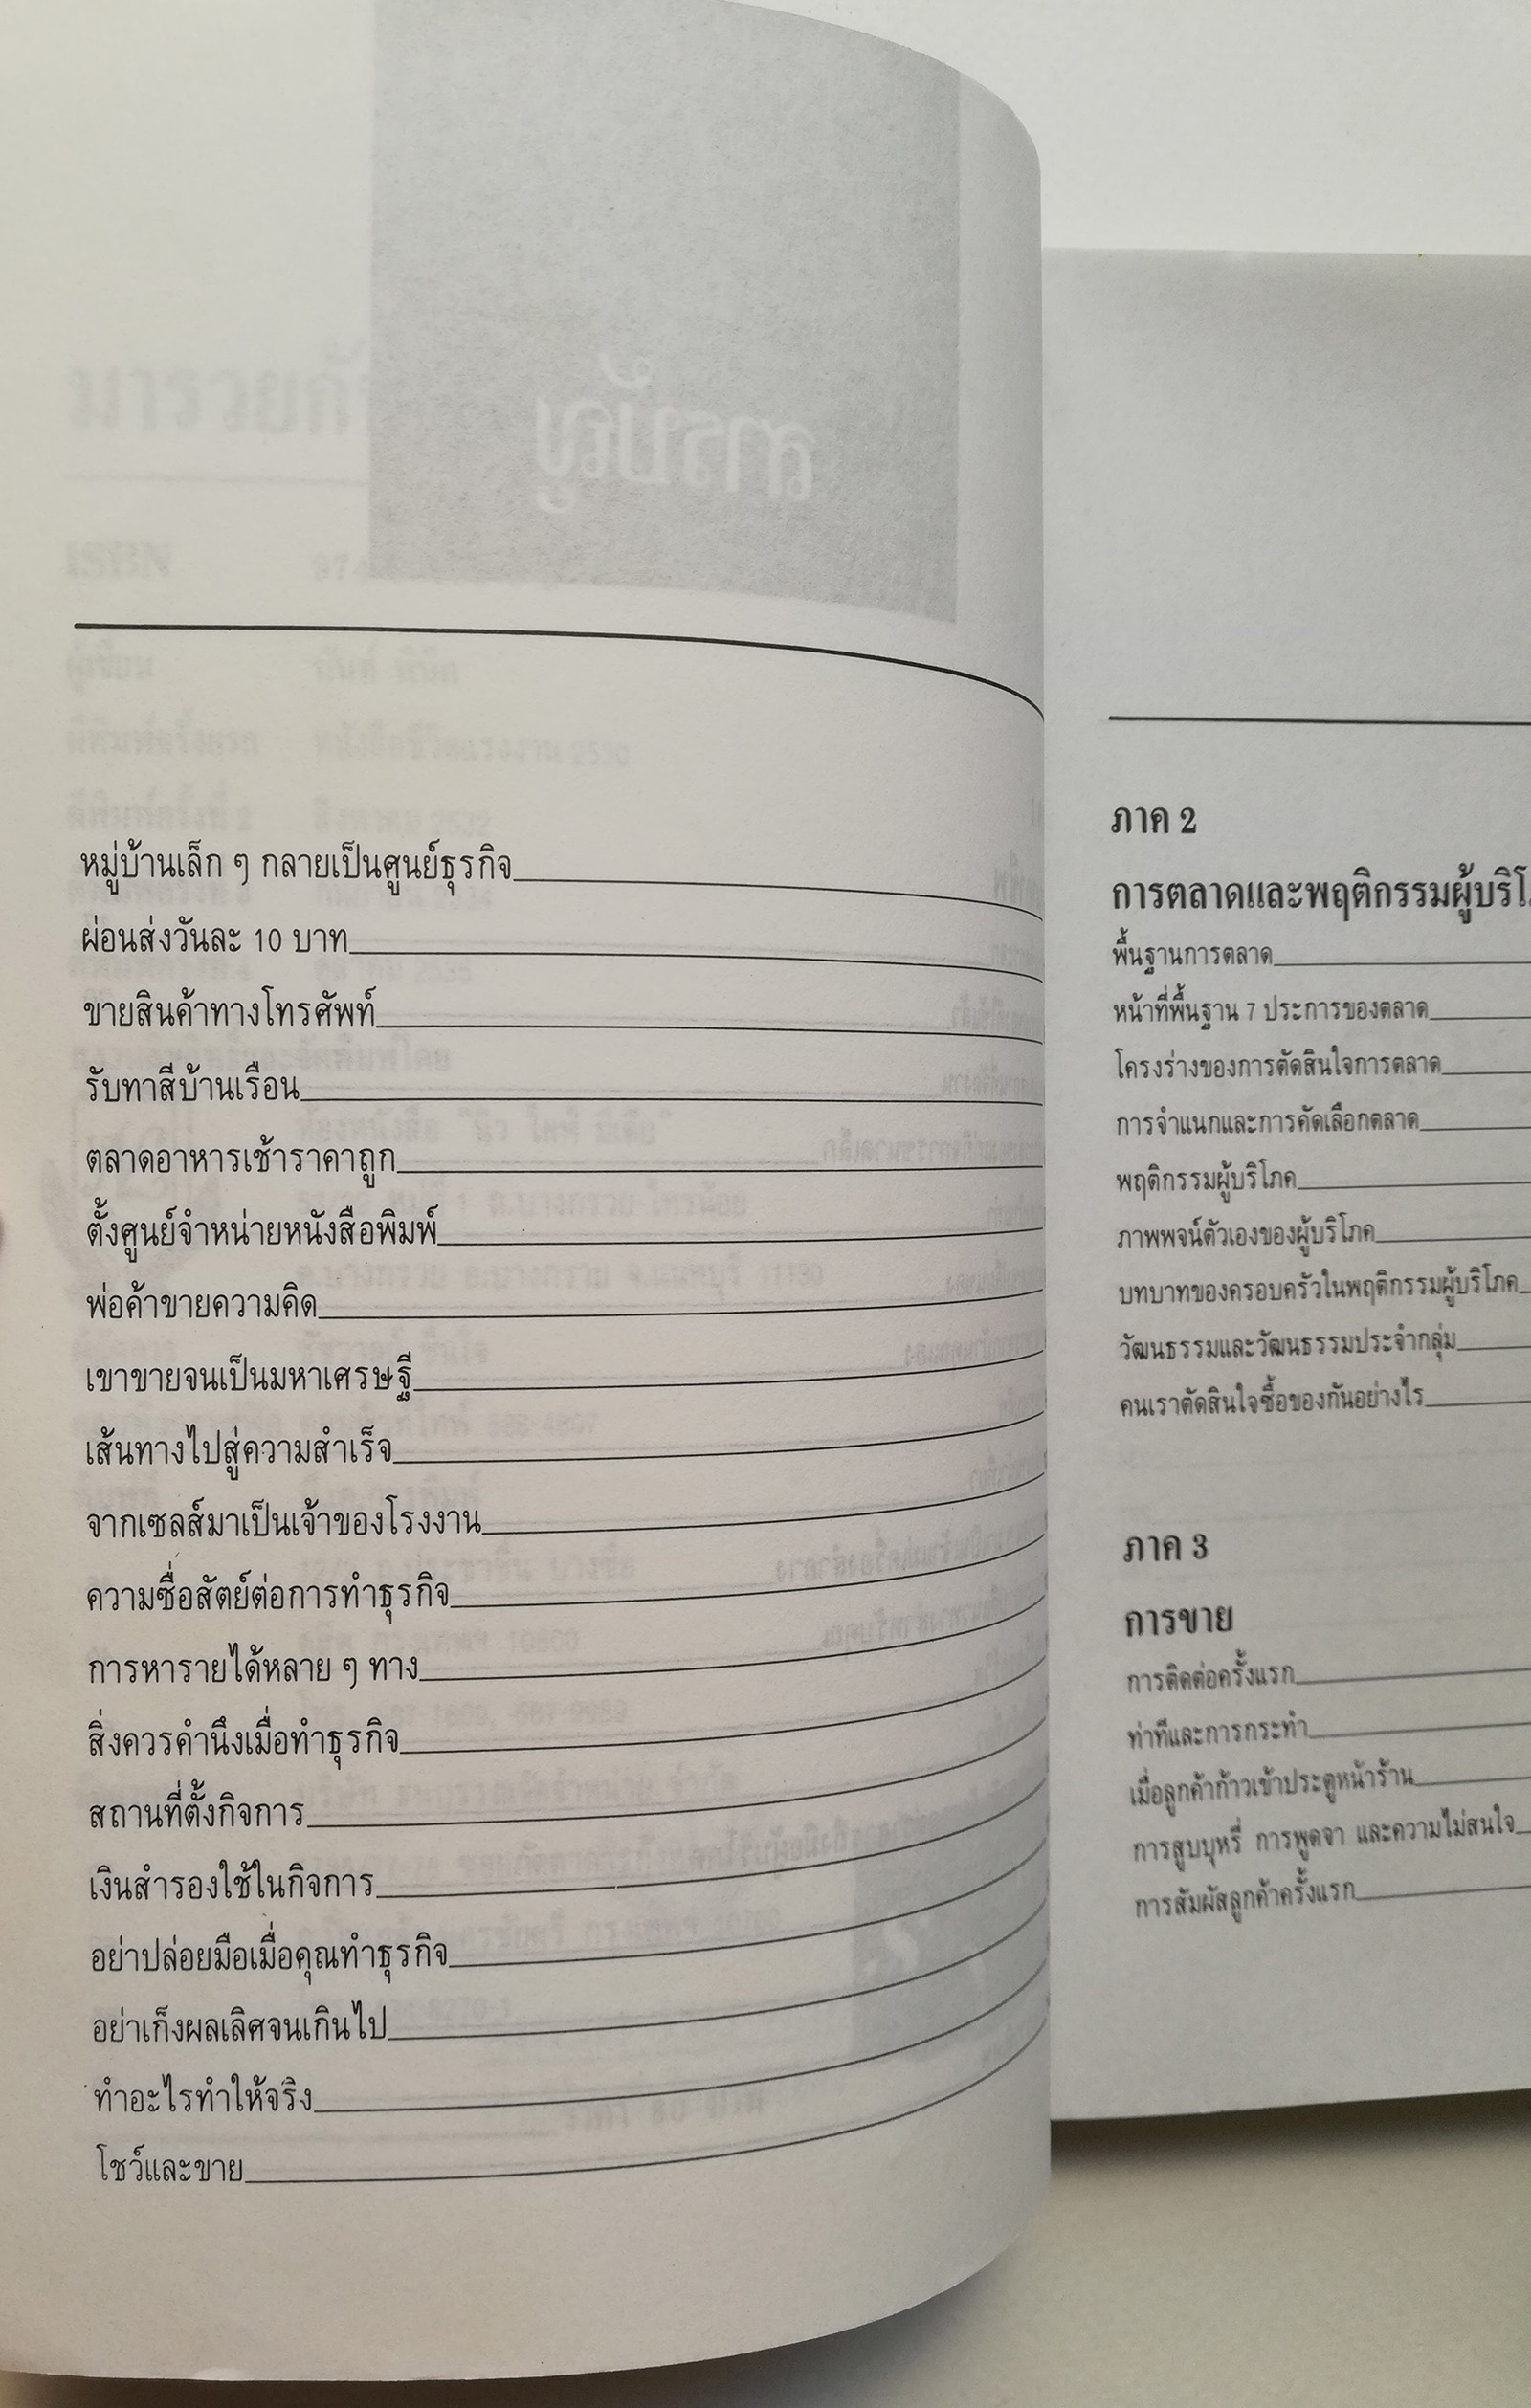 สารบัญ
หมู่บ้านเล็ก ๆ กลายเป็นศูนย์ธุรกิจ
ผ่อนส่งวันละ 10 บาท
ขายสินค้าทางโทรศัพท์
รับทาสีบ้านเรือน
ตลาดอาหารเช้าราคาถูก
ตั้งศูนย์จำหน่ายหนังสือพิมพ์
พ่อค้าขายความคิด
เขาขายจนเป็นมหาเศรษฐี
เส้นทางไปสู่ความสำเร็จ
จากเซลส์มาเป็นเจ้าของโรงงาน
ความซื่อสัตย์ต่อการทำธุรกิจ
การหารายได้หลาย ๆ ทาง
สิ่งควรคำนึงเมื่อทำธุรกิจ
สถานที่ตั้งกิจการ
เงินสำรองใช้ในกิจการ
อย่าปล่อยมือเมื่อคุณทำธุรกิจ
อย่าเก็งผลเลิศจนเกินไป
ทำอะไรทำให้จริง
โชว์และขาย
ภาค 2
การตลาดและพฤติกรรมผู้บริโ
พื้นฐานการตลาด
หน้าที่พื้นฐาน 7 ประการของตลาด
โครงร่างของการตัดสินใจการตลาด
การจำแนกและการคัดเลือกตลาด
พฤติกรรมผู้บริโภค
ภาพพจน์ตัวเองของผู้บริโภค
บทบาทของครอบครัวในพฤติกรรมผู้บริโภค
วัฒนธรรมและวัฒนธรรมประจำกลุ่ม
คนเราตัดสินใจซื้อของกันอย่างไร
ภาค 3
การขาย
การติดต่อครั้งแรก
ท่าทีและการกระทำ
เมื่อลูกค้าก้าวเข้าประตูหน้าร้าน
การสูบบุหรี่ การพูดจา และความไม่สนใจ
การสัมผัสลูกค้าครั้งแรก